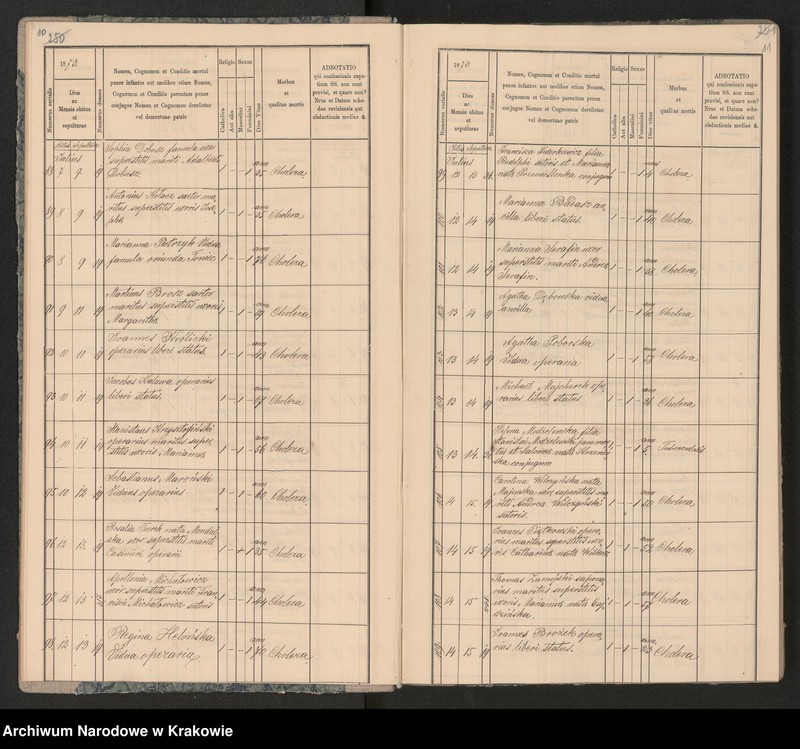 10
250
1873
Numerus serialis
Dies
ac
Mensis obitus
et
sepulturae
Numerus domus
Nomen, Cognomen et Conditio mortui
penes infantes aut caelibes etiam Nomen,
Cognomen et Conditio parentum penes
conjuges Nomen et Cognomen derelictae
vel demortuae partis
Religio
Sexus
Catholica
Aut alia
Masculini
Foeminini
Dies Vitae
Morbus
et
qualitas mortis
ADNOTATIO
qui confessionis capa-
tium SS. non sunt
provisi, et quare non?
Nrus et Datum sche-
dae revisionis aut
obductionis mediae &.
Julius
88 7 9 Sophia Dobosz famula uxor
superstitis mariti Adalberti
Dobosz. 1 – – 1 ann 35 Cholera
89 8 9 Antonius Kolacz sartor ma-
ritus superstitis uxoris Jose-
phae 1 – 1 – ann 35 Cholera
90 8 9 Marianna Pietrzyk Vidua
famula oriunda 1 – – 1 ann 70 Cholera
91 9 11 Martinus Brosz sartor
maritus superstitis uxoris
Margarithae 1 – 1 – ann Cholera
92 10 11 Joannes Krolicki
operarius liberi status. 1 – 1 – ann 43 Cholera
93 10 11 Jacobus operarius
liberi status. 1 – 1 – ann 47 Cholera
94 10 11 Stanislaus Krysztofiński
operarius maritus super-
stitis uxoris Mariannae 1 – 1 – ann 36 Cholera
95 10 12 Sebastianus Maroński
Viduus operarius 1 – 1 – ann 60 Cholera
96 12 13 Rosalia Turek nata Mondal-
ska uxor superstitis mariti
Casimiri operarii 1 – – 1 ann 35 Cholera
97 12 13 Apollonia Michałowicz
uxor superstitis mariti Fran-
cisci Michałowicz sutoris 1 – – 1 ann 44 Cholera
98 12 13 Regina Helońska
Vidua operaria. 1 – – 1 ann 70 Cholera
251
11
1873
Numerus serialis
Dies
ac
Mensis obitus
et
sepulturae
Numerus domus
Nomen, Cognomen et Conditio mortui
penes infantes aut caelibes etiam Nomen,
Cognomen et Conditio parentum penes
conjuges Nomen et Cognomen derelictae
vel demortuae partis
Religio
Sexus
Catholica
Aut alia
Masculini
Foeminini
Dies vitae
Morbus
et
qualitas mortis
ADNOTATIO
qui confessionis capa-
tium SS. non sunt
provisi, et quare non?
Nrus et Datum sche-
dae revisionis aut
obductionis mediae &.
Julius
99 12 13 Francisca filia
Rudolphi sutoris et Mariannae
nata conjugum 1 – – 1 4 Cholera
100 12 14 Marianna an-
cilla liberi status. 1 – – 1 ann 40 Cholera
101 12 14 Marianna Serafin uxor
superstitis mariti Andreae
Serafin. 1 – – 1 ann 38 Cholera
102 13 14 Agatha Dębowska vidua
ancilla 1 – – 1 ann 60 Cholera
103 13 14 Agatha Poborska
Vidua operaria 1 – – 1 ann Cholera
104 13 14 Michael Majcherek ope-
rarius liberi status 1 – 1 – ann 36 Cholera
105 13 14 Helena Modzelewska filia
Stanislai Modzelewski jam mor-
tui et Salomeae nata
conjugum 1 – – 1 ann 5 Tuberculosis
106 14 15 Carolina Wilczyńska nata
Majewska uxor superstitis ma-
riti Andreae Wilczyński
sutoris. 1 – – 1 ann 50 Cholera
107 14 15 Joannes Piątkowski opera-
rius maritus superstitis uxo-
ris Catharinae nata 1 – 1 – ann 52 Cholera
108 14 15 Thomas Zamojski
maritus superstitis
uxoris Mariannae nata Gaj-
dzińska. 1 – 1 – ann Cholera
109 14 15 Joannes Brożek opera-
rius liberi status. 1 – 1 – ann 23 Cholera
Archiwum Narodowe w Krakowie